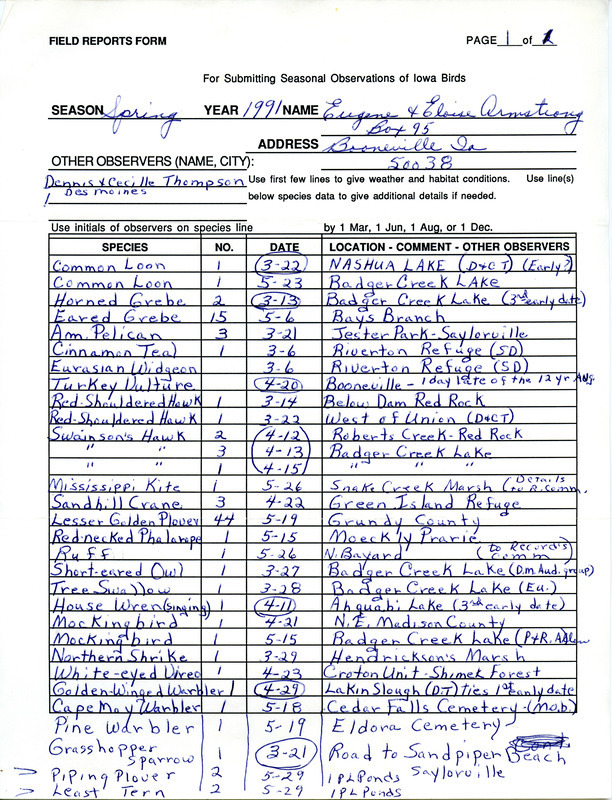 FIELD REPORTS FORM PAGE 1 of 2
For Submitting Seasonal Observations of Iowa Birds
SEASON Spring YEAR 1991 NAME Eugene & Eloise Armstrong
Box 95
ADDRESS Booneville Ia
OTHER OBSERVERS (NAME, CITY): 50038
Dennis & Cecille Thompson Use first few lines to give weather and habitat conditions. Use line(s)
Des moines below species data to give additional details if needed.
Use initials of observers on species line by 1 Mar, 1 Jun, 1 Aug, or 1 Dec.
SPECIES NO. DATE LOCATION - COMMENT - OTHER OBSERVERS
Common Loon 1 3-22 NASHUA LAKE (D&CT) (Early?)
Common Loon 1 5-23 Badger Creek LAKe
Horned Grebe 2 3-13 Badger Creek Lake (3rd early date)
Eared Grebe 15 5-6 Bays Branch
Am. Pelican 3 3-21 Jester Park-Saylorville
Cinnamon Teal 1 3-6 Riverton Refuge (SD)
Eurasian Widgeon 3-6 Riverton Refuge (SD)
Turkey Vulture 4-20 Booneville - 1 day late of the 12 yr Avg.
Red-Shouldered Hawk 1 3-14 Below Dam Red Rock
Red-Shouldered Hawk 1 3-22 West of Union (D&CT)
Swainson's Hawk 2 4-12 Roberts Creek-Red Rock
" " 3 4-13 Badger Creek Lake
" " 1 4-15 " " "
Mississippi Kite 1 5-26 Snake Creek Marsh (Details to R. Comm.
Sandhill Crane 3 4-22 Green Island Refuge
Lesser Golden Plover 44 5-19 Grundy County
Red-necked Phalarope 1 5-15 Moeckly Prarie
Ruff 1 5-26 N. Bayard (to Records Comm)
Short-eared Owl 1 3-27 Badger Creek Lake (D.m. Aud. group)
Tree Swallow 1 3-28 Badger Creek Lake (Eu.)
House Wren (singing) 1 4-11 Ahquabi Lake (3rd early date)
Mockingbird 1 4-21 N.E. Madison County
Mockingbird 1 5-15 Badger Creek Lake (P&R.
Northern Shrike 1 3-29 Hendrickson's Marsh
White-eyed Vireo 1 4-23 Croton Unit-Shimek Forest
Golden-Winged Warbler 1 4-29 Lakin Slough (DT) ties 1st early date
Cape May Warbler 1 5-18 Cedar Falls Cemetery (m.o.b.)
Pine Warbler 1 5-19 Eldora Cemetery
Grasshopper Sparrow 1 3-21 Road to Sandpiper Beach
Saylorville
> Piping Plover 2 5-29 IPL Ponds
> Least Tern 2 5-29 IPL Ponds